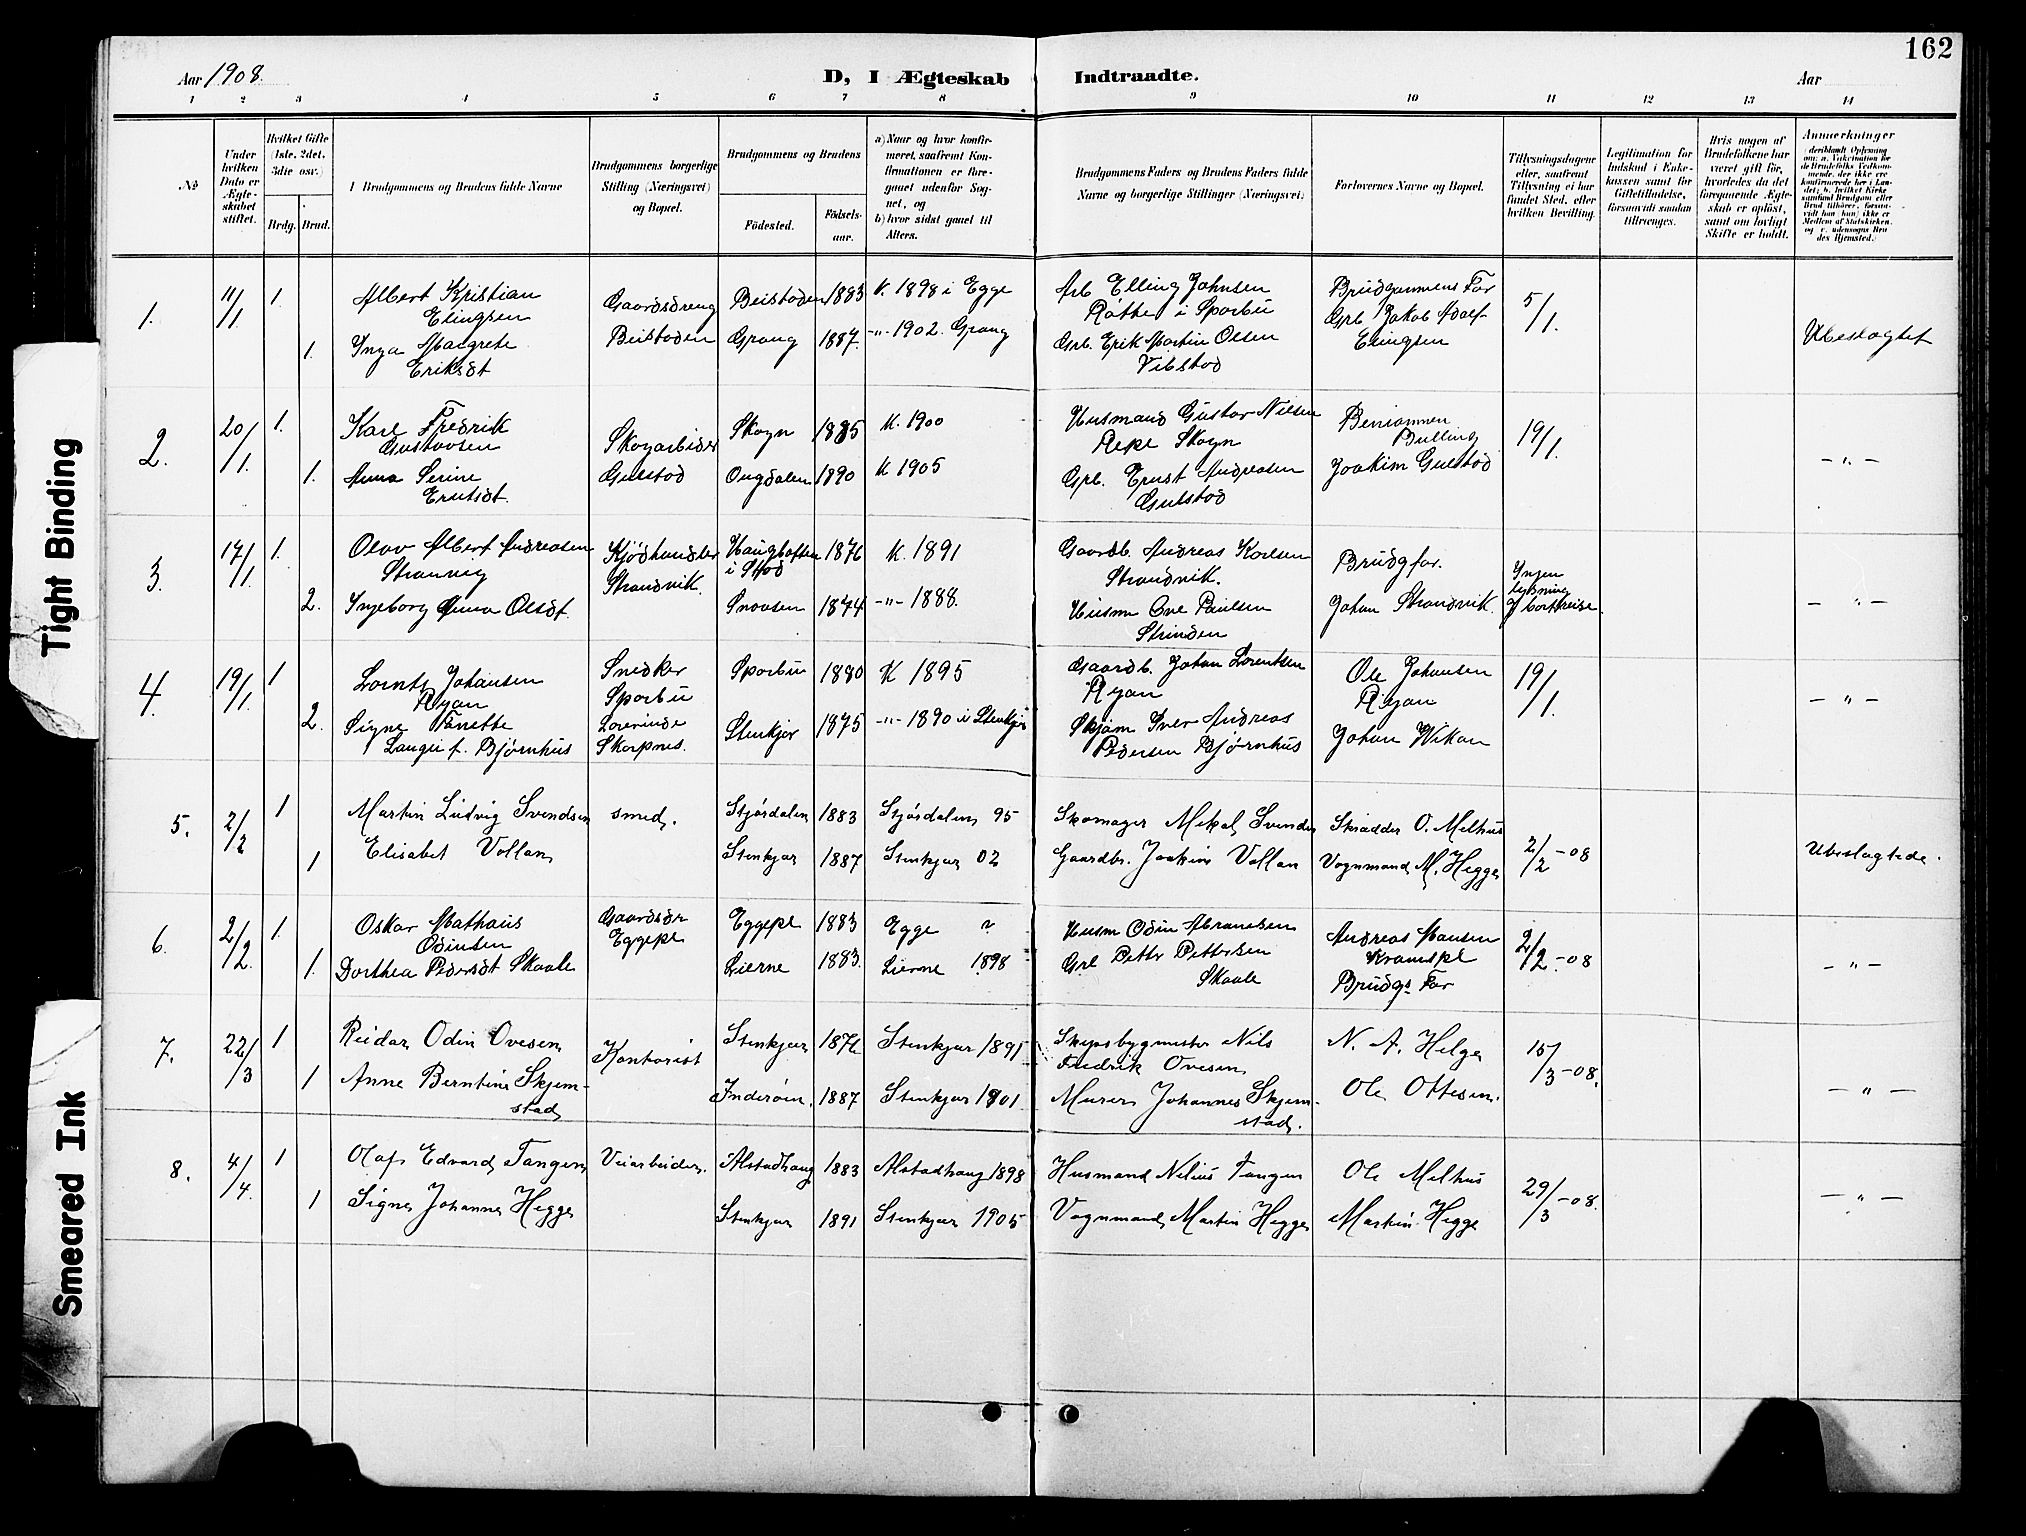 162
Aar 1908.
D, I Ægteskab Indtraadte.
Aar
1 2 3 4 5 6 7 8 9 10 11 12 13 14
No
Under hvilken Dato er Ægteskabet stiftet.
Hvilket Gifte (1ste, 2det, 3die osv.)
Brdg. Brud.
Brudgommens og Brudens fulde Navne
Brudgommens borgerlige Stilling (Næringsvei) og Bopæl.
Brudgommens og Brudens
Fødested.
Fødselsaar.
a) Naar og hvor konfirmeret, saafremt Konfirmationen er foregaaet udenfor Sognet, og
b) hvor sidst gaaet til Alters.
Brudgommens Faders og Brudens Faders fulde Navne og borgerlige Stillinger (Næringsvei)
Forlovernes Navne og Bopæl.
Tillysningsdagene eller, saafremt Tillysning ei har fundet Sted, efter hvilken Bevilling.
Legitimation for Indskud i Enkekassen samt for Giftetilladelse, forsaavidt saadan tiltrænges.
Hvis nogen af Brudefolkene har været gift før, hvorledes da det foregaaende Ægteskab er opløst, samt om lovligt Skifte er holdt.
Anmærkninger
1. 11/1 1. Albert Kristian Elingsen Gaardsdreng Beistaden 1883 K. 1898 i Egge Arb Elling Johnsen Brudgommens Far 5/1.
Røthe i Sparbu Grb. Jakob Adolf Elingsen
1. Inga Margrete Eriksdt Beistaden Grong 1887. -"- 1902. Grong Grb. Erik Martin Olsen Vibstad Ubeslægtet
2. 20/1. 1. Karl Fredrik Gustavsen Skogarbider Skogn 1885 K. 1900 Husmand Gustav Nilsen Skogn Bulling 19/1.
1. Anna Serine Gulstad Ongdalen 1890 K 1905 Grb. Ernst Andreasen Gulstad Joakim Gulstad - " -
3. 17/1. 1. Olav Albert Andreasen Kjødhandler i Stod 1876 K. 1891 Gaardb. Andreas Karlsen Strandvik. Brudg far. Ingen lysning
Strandvik.
2. Ingeborg Anna Olsdt. Snaasen 1874 -"- 1888. Husm Ove Paulsen Strinden Johan Strandvik. - " -
4. 19/1. 1 Lornts Johansen Ryan Snedker Sparbu Sparbu 1880 K 1895 Gaardb. Johan Lorentsen Ryan Ole Johansen Ryan 19/1.
2. Signe Fanette Lange f. Bjørnhus Skarpnes. Stenkjer 1875 -"- 1890 i Stenkjer Iver Andreas Pedersen Bjørnhus Johan Wikan - " -
5. 2/2 1 Martin Ludvig Svendsen smed. Stjørdalen 1883 Stjørdalen 95 Skomager Mikal Svendsen Skrædder O. Melhus 2/2 - 08
1 Elisabet Vollan Stenkjær 1887 Stenkjær 02 Gaardbr. Joakim Vollan Vognmand M. Hegge Ubeslægtede.
6. 2/2. 1. Oskar Mathæus Odinsen Gaardsdr Eggepl Eggepl 1883 Egge ? Husm Odin Abramsen Andreas Hansen 2/2 - 08
1. Dorthea Pedersdt Skaale Lierne 1883. Lierne 1898 Grb Petter Pettersen Skaale Brudgs Far - " -
7. 22/3 1 Reidar Odin Ovesen Kontorist Stenkjær 1876 Stenkjær 1891 Skipsbygmester Nils Fredrik Ovesen N. A. Helge 15/3 - 08.
1 Anne Berntine Skjemstad Inderøen. 1887 Stenkjær 1901 Murer Johannes Skjemstad. Ole Ottesen. - " -
8. 4/4. 1 Olaf Edvard Tangen Veiarbeider. Alstadhaug 1883 Alstadhaug 1898 Husmand Nilius Tangen Ole Melhus 29/3 - 08.
1 Signe Johanne Hegge Stenkjær 1891 Stenkjær 1905 Vognmand Martin Hegge Martin Hegge - " -
Tight Binding
Smeared Ink